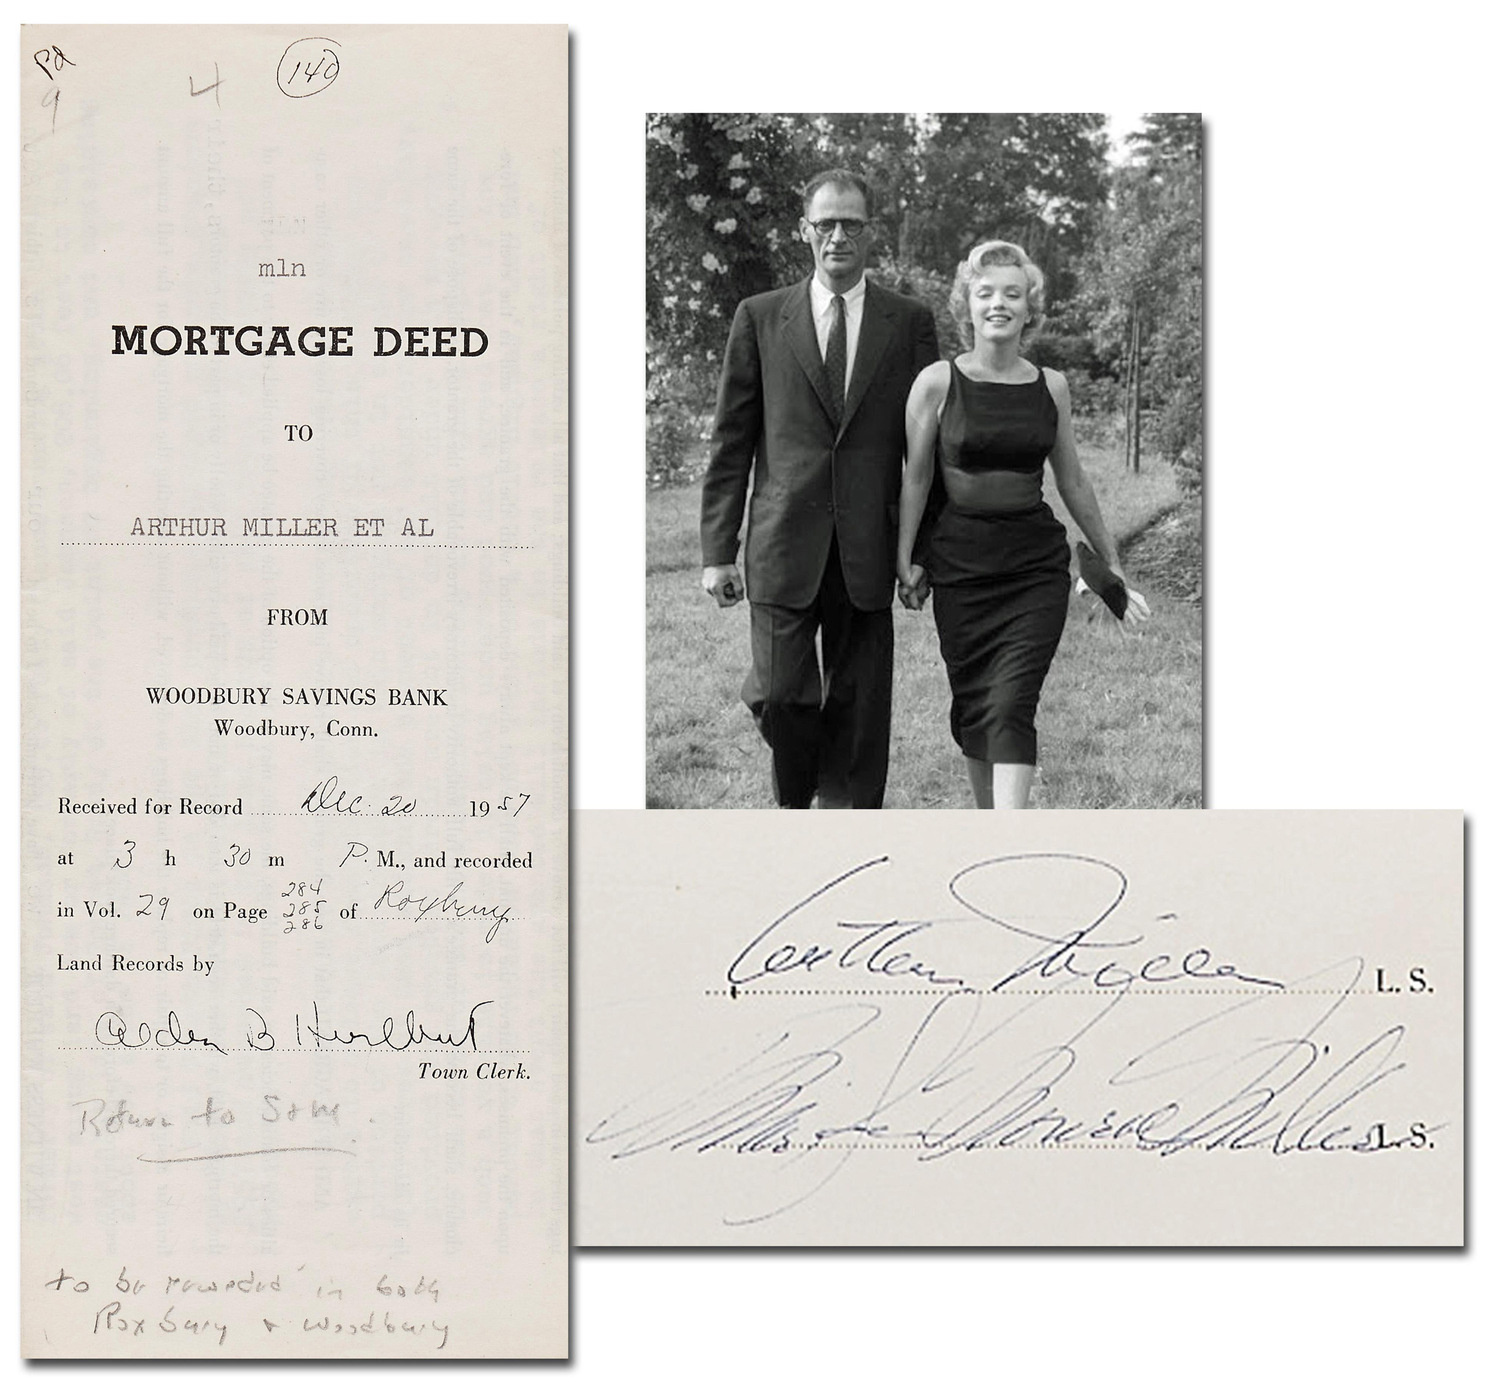 Pd
9
4
140
mln
MORTGAGE DEED
TO
ARTHUR MILLER ET AL
FROM
WOODBURY SAVINGS BANK
Woodbury, Conn.
Received for Record Dec. 20 1957
at 3 h 30 m P. M., and recorded
284
in Vol. 29 on Page 285 of Roxbury
286
Land Records by
Alden B Hurlbut
Town Clerk.
Return to
to be recorded in both
Roxbury + Woodbury
Arthur Miller L. S.
Marilyn Monroe Miller L. S.